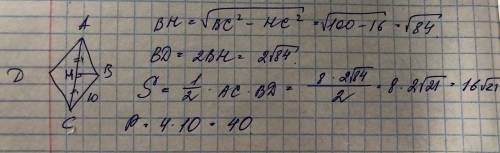 A
D
H
B
10
C
BH = √BC² - HC² = √100 - 16 = √84
BD = 2BH = 2√84
S = 1/2 · AC · BD = 8 · 2√84/2 = 8 · 2√21 = 16√21
P = 4 · 10 = 40